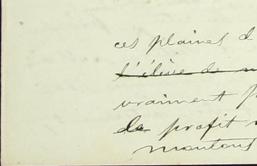 ces plaines d
l'élève de m
vraiment p
de profit
moutons